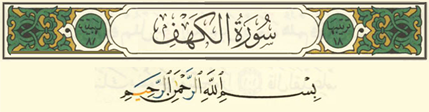 سُورَةُ الكَهْفِ
بِسْمِ اللَّهِ الرَّحْمَٰنِ الرَّحِيمِ